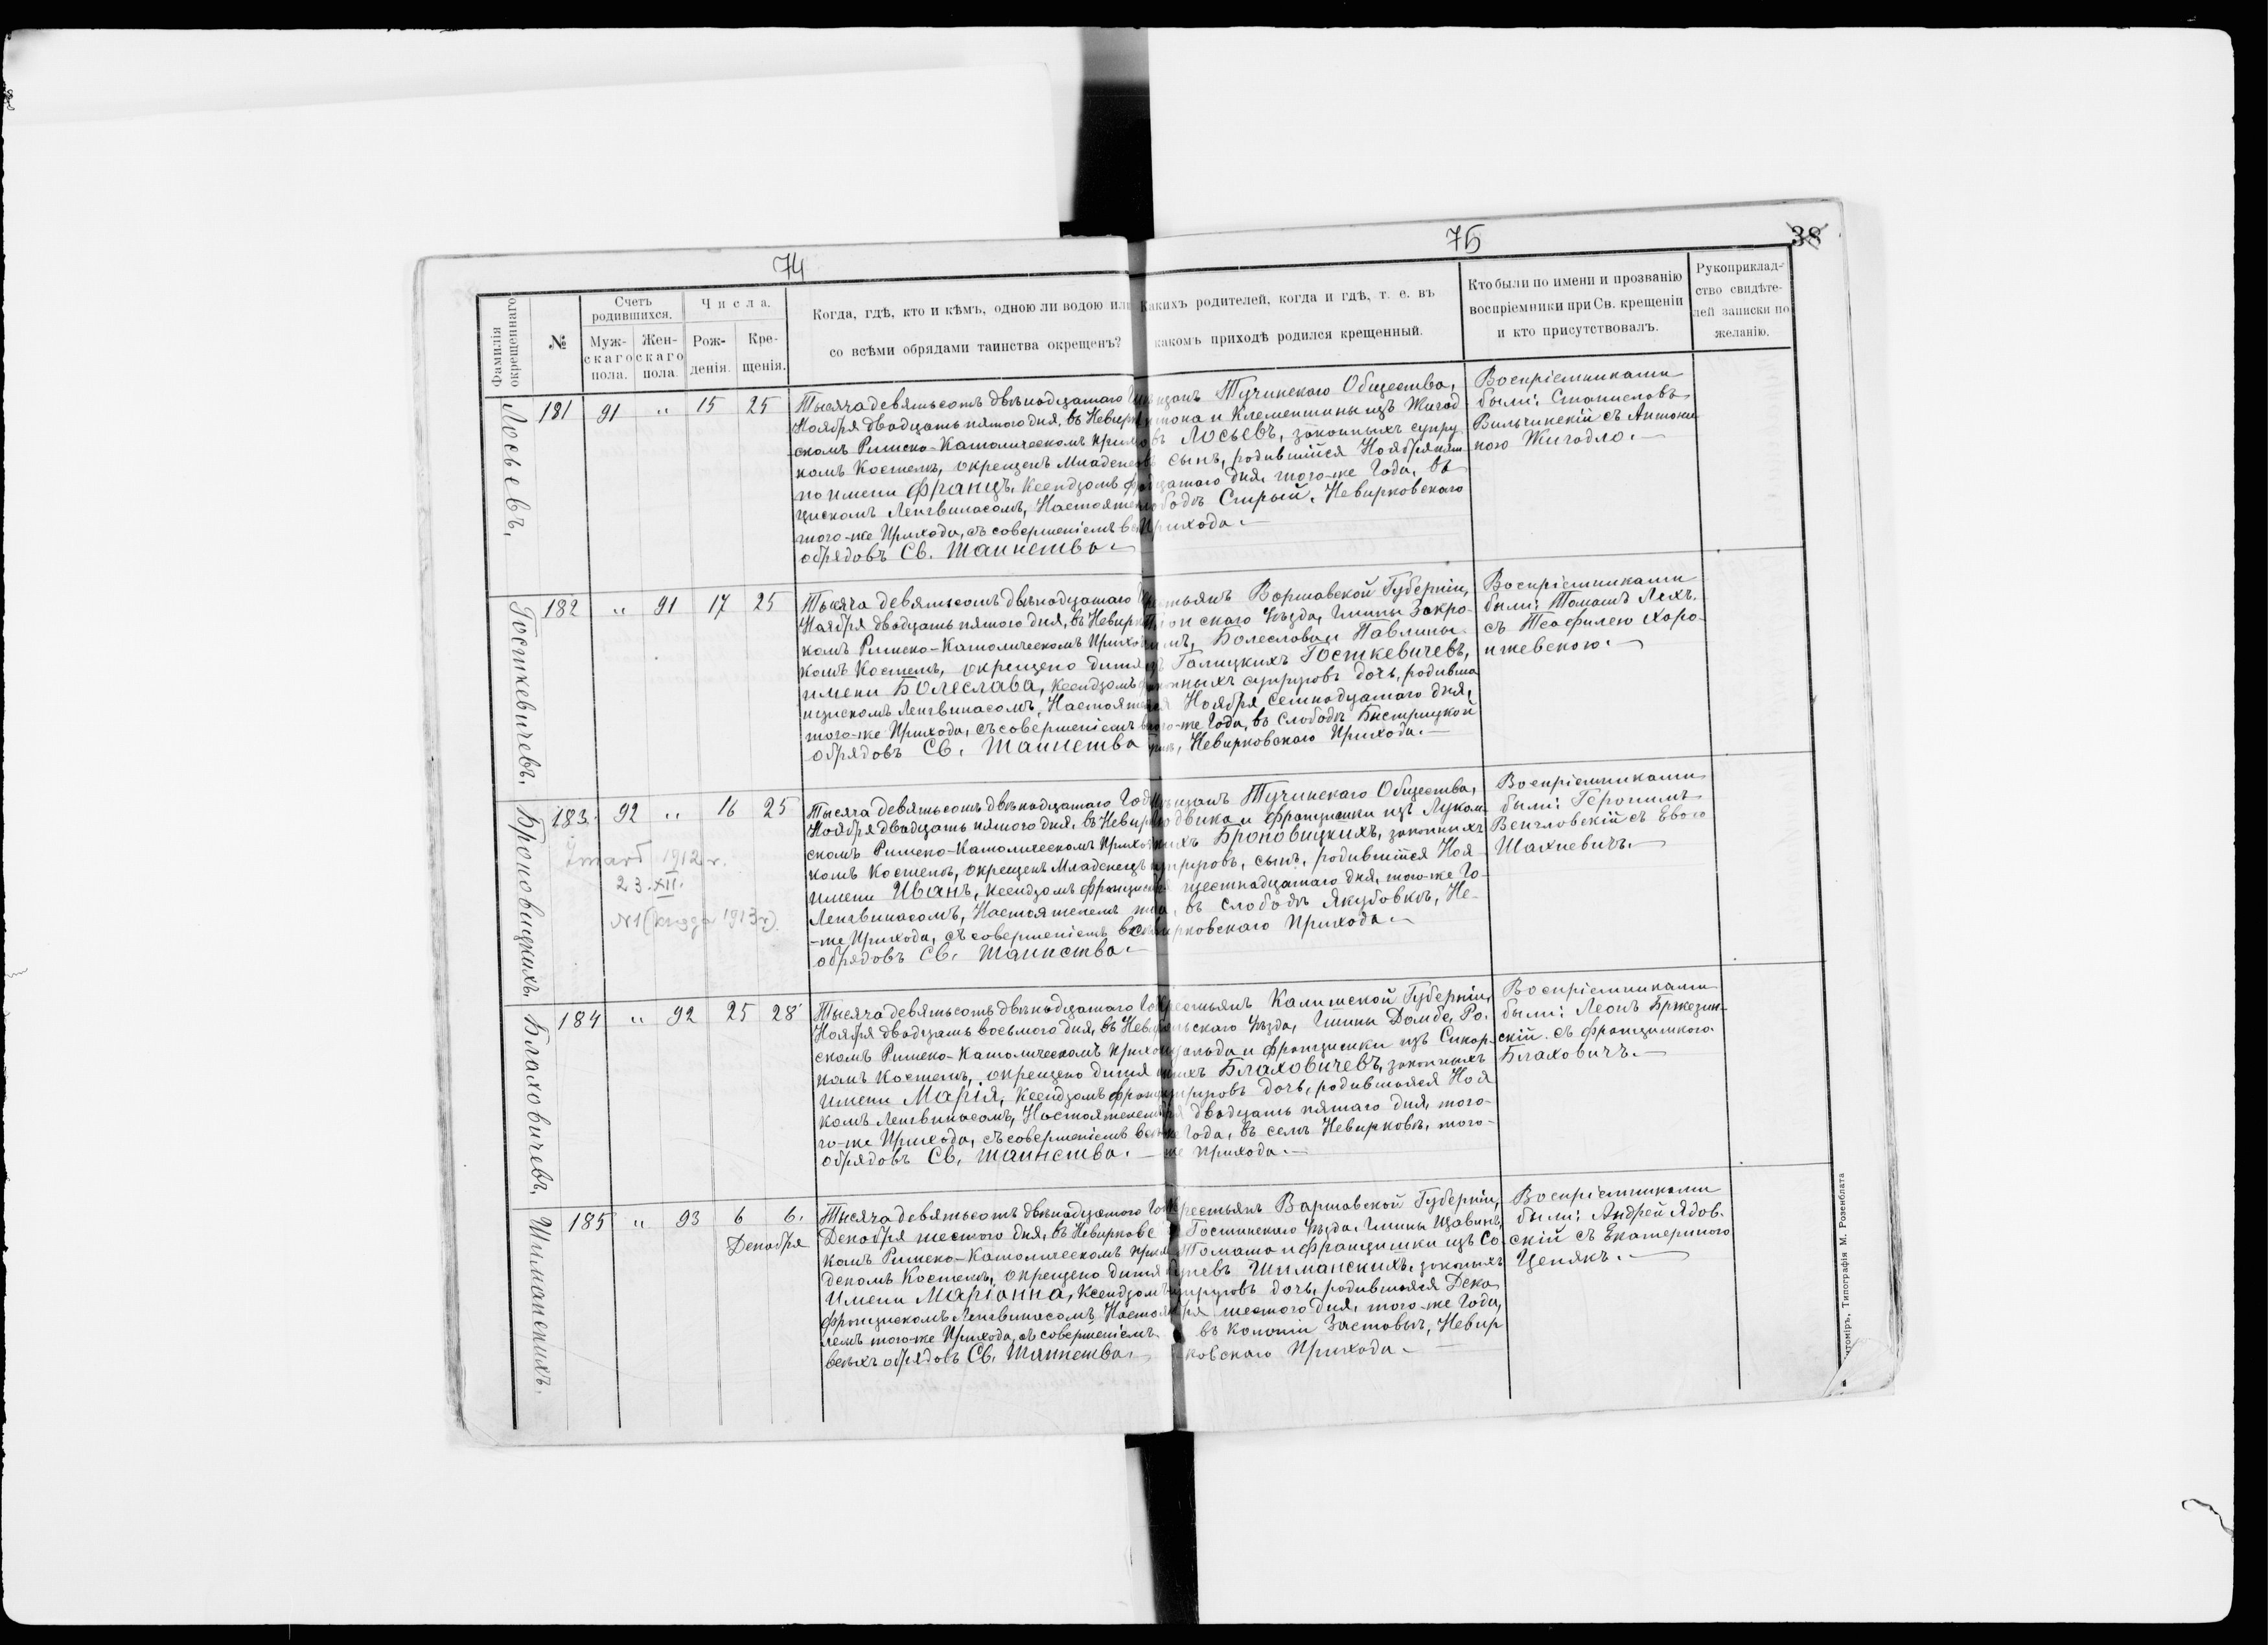 74
75
38
Фамилія окрещеннаго
№
Счетъ родившихся.
Муж-скаго пола.
Жен-скаго пола.
Числа.
Рож-денія.
Кре-щенія.
Когда, гдѣ, кто и кѣмъ, одною ли водою или
со всѣми обрядами таинства окрещенъ?
Какихъ родителей, когда и гдѣ, т. е. въ
какомъ приходѣ родился крещенный.
Кто были по имени и прозванію
воспріемники при Св. крещеніи
и кто присутствовалъ.
Рукоприклад-
ство свидѣте-
лей записки по
желанію.
Лосьевъ.
181 91 " 15 25
Тысяча девятьсотъ двѣнадцатаго
Ноября двадцать пятого дня, въ Невирк
скомъ Римско-Католическомъ Прихо
комъ Костелѣ, окрещенъ Младенец
по имени Францъ, Ксендзомъ Фран
цискомъ Ленгвинасомъ, Настояте
того-же Прихода, съ совершеніемъ в
обрядовъ Св. Таинства.—
щанъ Тучинскаго Общества,
тона и Клементины изъ Жигад
въ Лосьевъ, законныхъ супру
сынъ, родившійся Ноября пят
цатаго дня, того-же Года, въ
ободѣ Старый, Невирковскаго
Прихода.—
Воспріемниками
были: Станиславъ
Вильчинскій съ Антони
ною Жигадло.—
Госткевичевъ.
182 " 91 17 25
Тысяча девятьсотъ двѣнадцатаго
Ноября двадцать пятого дня, въ Невирк
комъ Римско-Католическомъ Приход
комъ Костелѣ, окрещено дитя
имени Болеслава, Ксендзомъ
нцискомъ Ленгвинасомъ, Настояте
того-же Прихода, съ совершеніемъ в
обрядовъ Св. Таинства
стьянъ Варшавской Губерніи,
онскаго Уѣзда, Гмины Закро-
Болеслава и Павлины
Галицкихъ Госткевичевъ,
нныхъ супруговъ дочь, родивша
Ноября семнадцатаго дня,
того-же Года, въ Слободѣ Быстрицкой
Невирковскаго Прихода.—
Воспріемниками
были: Томашъ Лехъ
съ Теофилею Харо-
ижевскою.—
Броновицкихъ.
183. 92 " 16 25
1912 г.
23.XII.
N1 (1913 г.)
Тысяча девятьсотъ двѣнадцатаго Года
Ноября двадцать пятого дня, въ Невирко
скомъ Римско-Католическомъ Приход
комъ Костелѣ, окрещенъ Младенецъ
имени Иванъ, Ксендзомъ Францис
Ленгвинасомъ, Настоятелемъ то
-же Прихода, съ совершеніемъ всѣ
обрядовъ Св. Таинства.—
щанъ Тучинскаго Общества,
двика и Францишки изъ Луком
ихъ Броновицкихъ, законныхъ
супруговъ, сынъ, родившійся Ноя
шестнадцатаго дня, того-же Го-
въ слободѣ Якубовкѣ, Не-
вирковскаго Прихода.—
Воспріемниками
были: Геронимъ
Венгловскій съ Евою
Шахневичъ.—
Блаховичевъ.
184 " 92 25 28
Тысяча девятьсотъ двѣнадцатаго Го
Ноября двадцать восьмого дня, въ Неви
скомъ Римско-Католическомъ Прихо
комъ Костелѣ, окрещено дитя
имени Марія, Ксендзомъ Франц
комъ Ленгвинасомъ, Настоятелемъ
го-же Прихода, съ совершеніемъ все
обрядовъ Св. Таинства.—
Крестьянъ Калишской Губерніи,
льскаго Уѣзда, Гмины Домбе, Ро-
альда и Францишки изъ Сикор-
скихъ Блаховичевъ, законныхъ
супруговъ дочь, родившаяся Ноя
бря двадцать пятаго дня, того-
же Года, въ селѣ Невирковѣ, того-
же Прихода.—
Воспріемниками
были: Леонъ Бржезин-
скій съ Францишкою
Блаховичъ.—
Шиманскихъ.
185 " 93 6 6.
Декабря
Тысяча девятьсотъ двѣнадцатого Го
Декабря шестого дня, въ Невиркове
комъ Римско-Католическомъ Прихо
дскомъ Костелѣ, окрещено дитя
имени Маріанна, Ксендзомъ
Францискомъ Ленгвинасомъ Настоя
лемъ того-же Прихода, съ совершеніемъ
всѣхъ обрядовъ Св. Таинства.—
Крестьянъ Варшавской Губерніи,
Гостинскаго Уѣзда, Гмины Щавинъ,
Томаша и Францишки изъ Со-
Шиманскихъ, законныхъ
супруговъ дочь, родившаяся Дека
бря шестого дня, того-же Года,
въ Колоніи Заставье, Невир
ковскаго Прихода.—
Воспріемниками
были: Андрей Ядов-
скій съ Екатериною
Ценякъ.—
Житоміръ, Типографія М. Розенблата